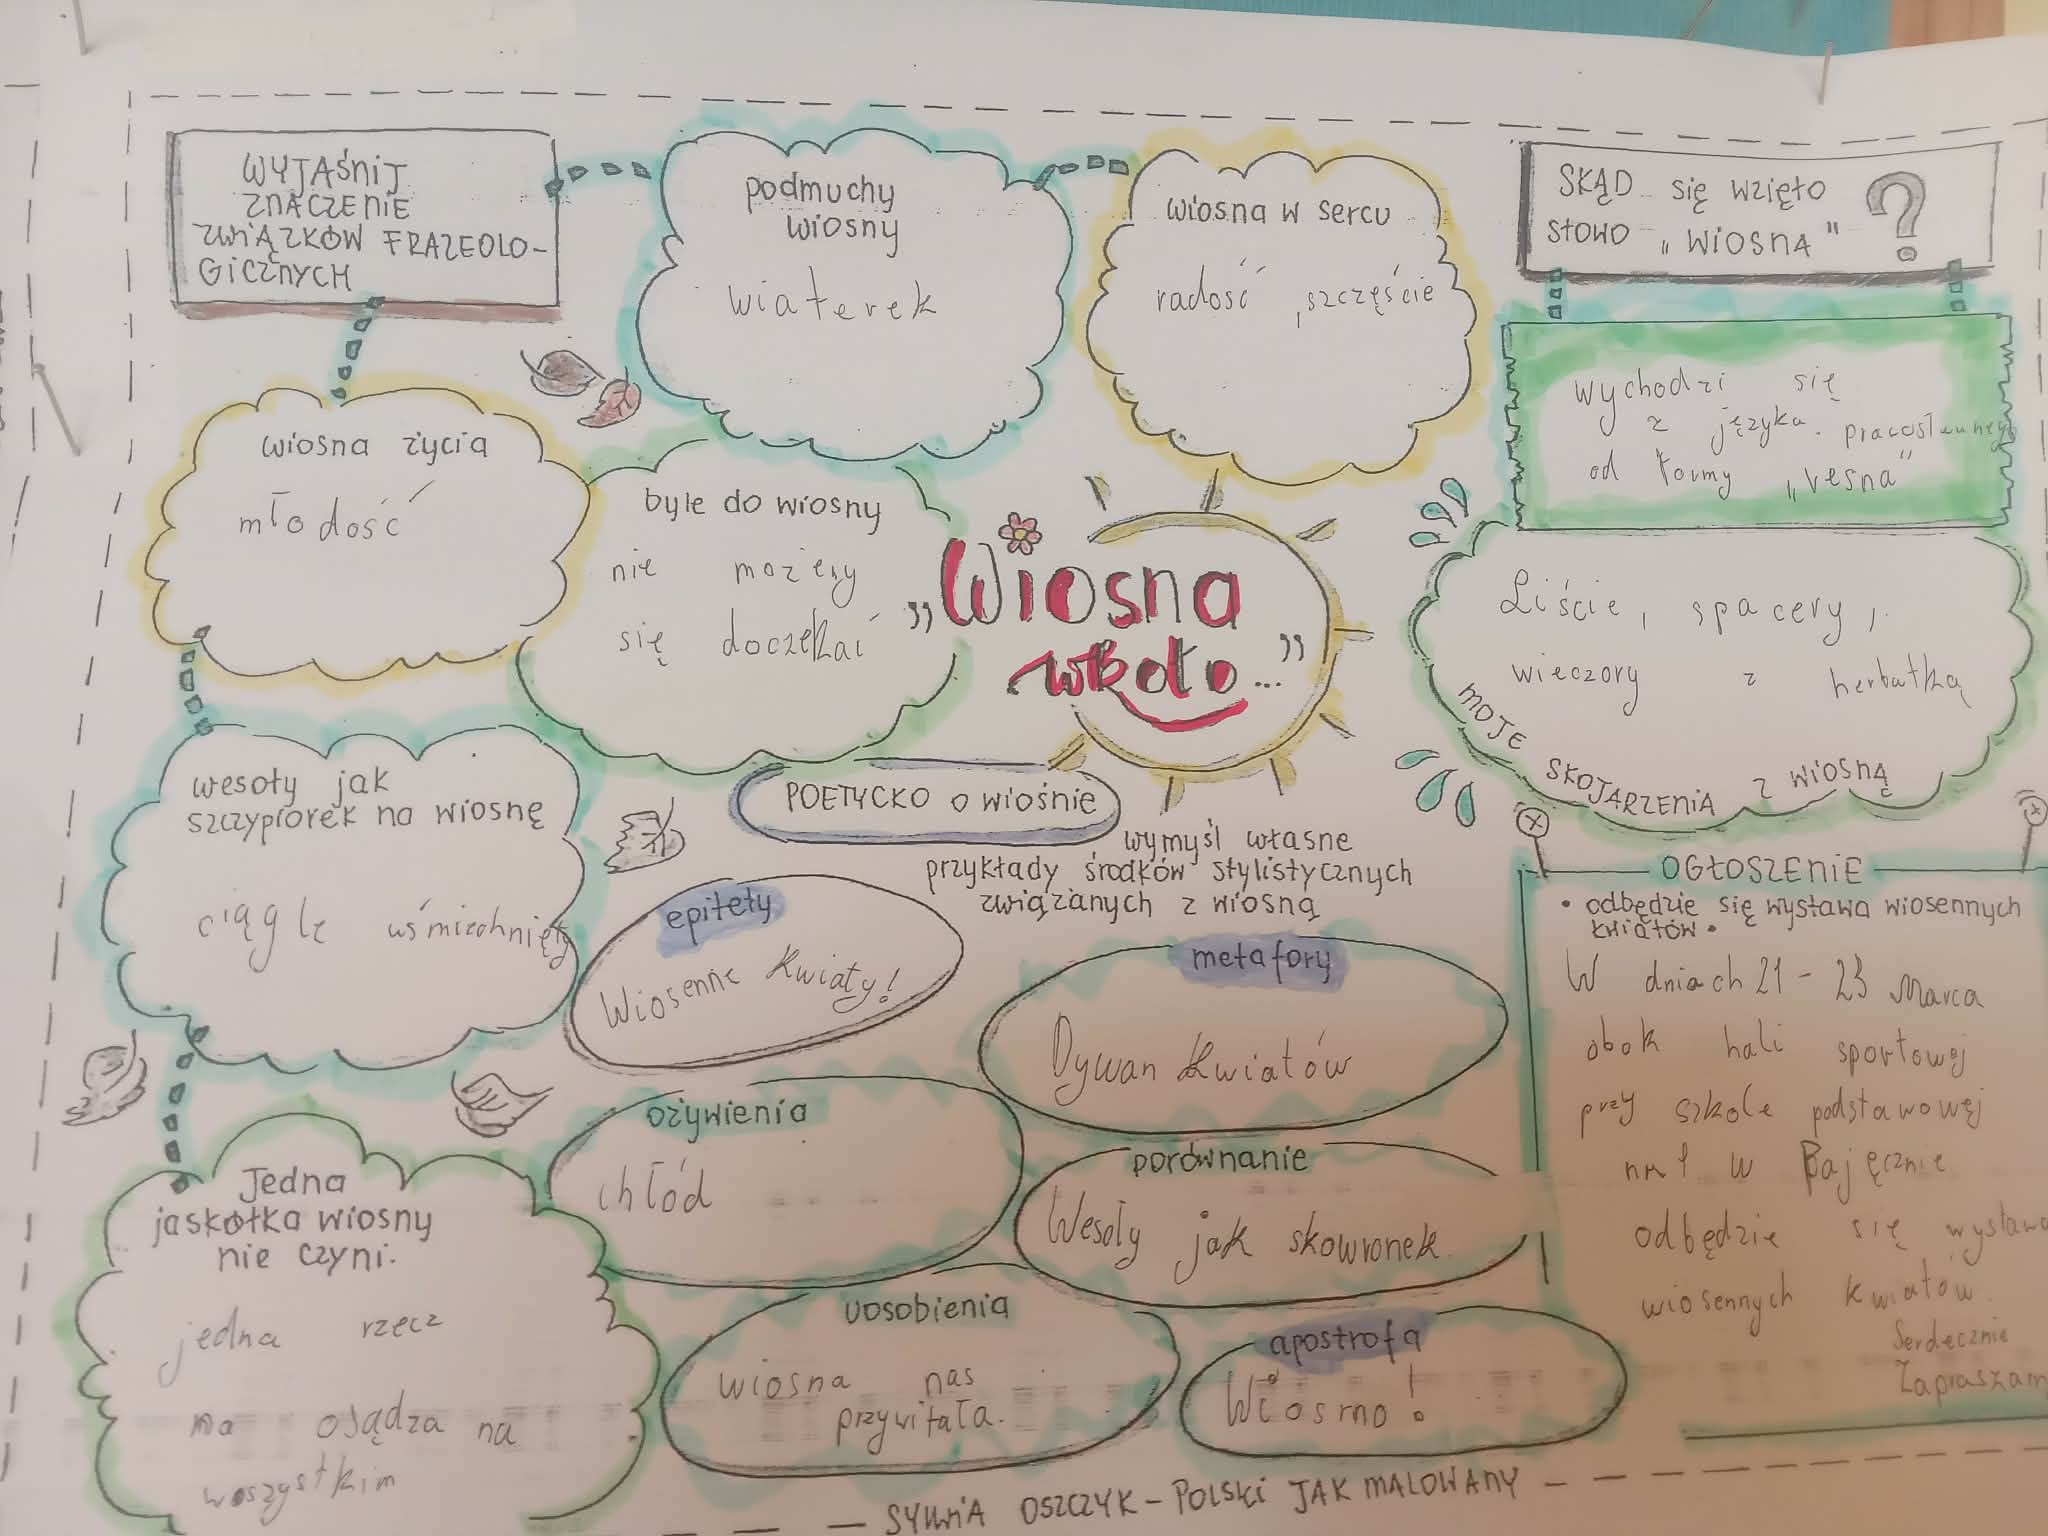 WYJAŚNIJ
ZNACZENIE
ZWIĄZKÓW FRAZEOLO-
GICZNYCH
podmuchy
wiosny
wiaterek
wiosna w sercu
radość, szczęście
SKĄD się wzięło
słowo „WIOSNA" ?
Wychodzi się
z języka
od formy „vesna"
wiosna życia
młodość
byle do wiosny
nie możemy
się doczekać
„Wiosna
wkoło..."
Liście, spacery,
wieczory z herbatką
MOJE SKOJARZENIA Z WIOSNĄ
wesoły jak
szczypiorek na wiosnę
ciągle uśmiechnięty
POETYCKO O WIOŚNIE
wymyśl własne
przykłady środków stylistycznych
związanych z wiosną
epitety
Wiosenne kwiaty!
metafory
Dywan kwiatów
ożywienia
chłód
porównanie
Wesoły jak skowronek.
uosobienia
wiosna nas
przywitała.
apostrofa
Wiosno!
Jedna
jaskółka wiosny
nie czyni.
jedna rzecz
na
wszystkim
OGŁOSZENIE
• odbędzie się wystawa wiosennych
kwiatów •
W dniach 21-23 Marca
obok hali sportowej
przy szkole podstawowej
nr 1 w Bajęcznie
odbędzie się wystawa
wiosennych kwiatów.
Serdecznie
Zapraszam
SYLWIA OSZCZYK - POLSKI JAK MALOWANY